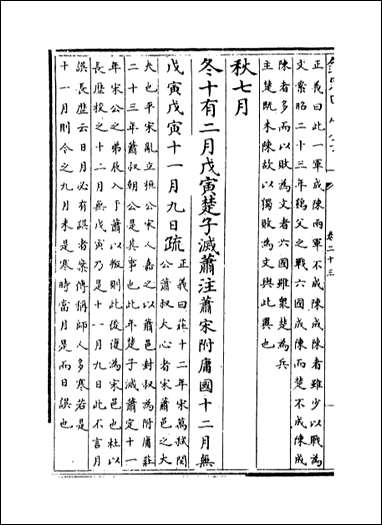 卷二十三
正義曰此一軍成陳兩軍不成陳成陳者雖少以戰為
文案昭二十三年鷄父之戰六國成陳而楚不成陳成
陳者多而以敗為文者六國雖衆楚為兵
主楚既未陳故以獨敗為文與此異也
秋七月
冬十有二月戊寅楚子滅蕭注蕭宋附庸國十二月無
戊寅戊寅十一月九日疏正義曰莊十二年宋萬弑閔
公蕭叔大心者宋蕭邑之大
夫也平宋亂立桓公宋人嘉之以蕭邑封叔為附庸莊
二十三年蕭叔朝公是其事也此年楚子滅蕭定十一
年宋公之弟辰入于蕭以叛則此後復為宋邑也杜以
長歷校之十二月無戊寅乃是十一月九日此不言月
誤長歷云日月必有誤者案傳稱師人多寒若是
十一月則今之九月未是寒時當月是而日誤也